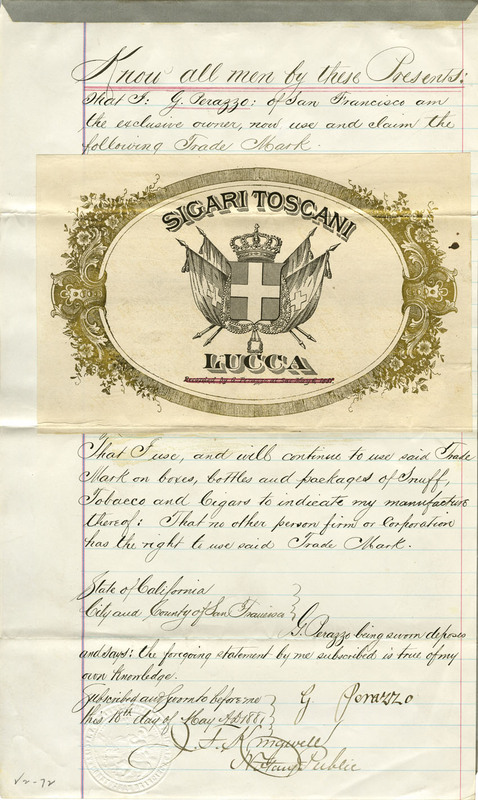 Know all men by these Presents:
That I: G. Perazzo: of San Francisco am
the exclusive owner, now use and claim the
following Trade Mark.
SIGARI TOSCANI
LUCCA
That I use, and will continue to use said Trade
Mark on boxes, bottles and packages of Snuff,
Tobacco and Cigars to indicate my manufacture
thereof: That no other person firm or Corporation
has the right to use said Trade Mark.
State of California
City and County of San Francisco
G. Perazzo being sworn deposes
and says: the foregoing statement by me subscribed is true of my
own Knowledge.
Subscribed and sworn to before me
this 18th day of May AD 1881
G Perazzo
Notary Public